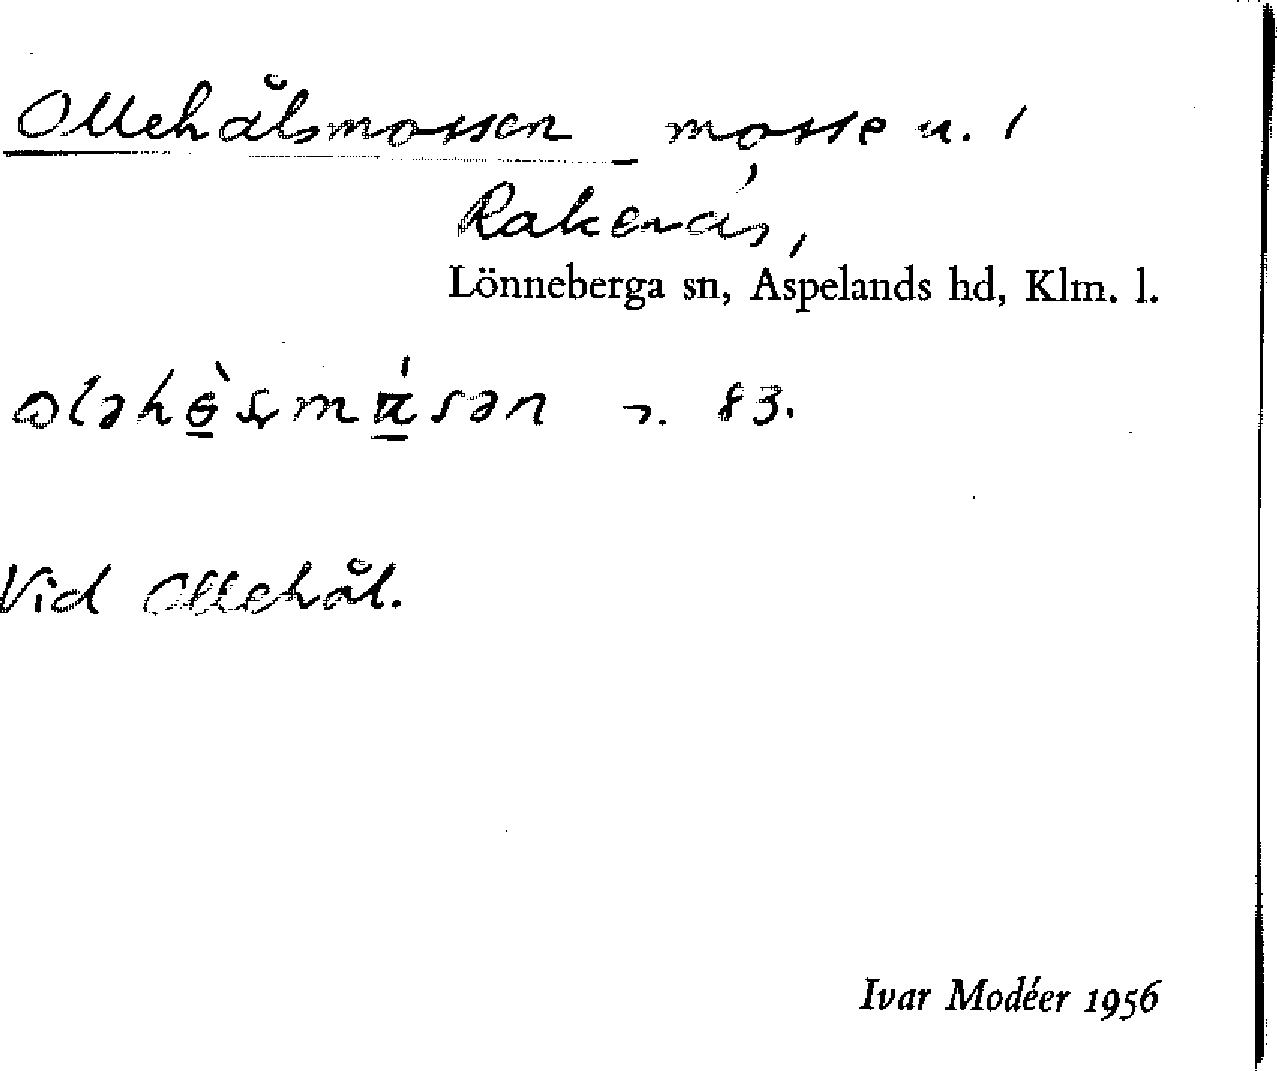 Ollehålsmossen mosse u. 1
Rakenäs,
Lönneberga sn, Aspelands hd, Klm. l.
83.
Vid Ollehål.
Ivar Modéer 1956